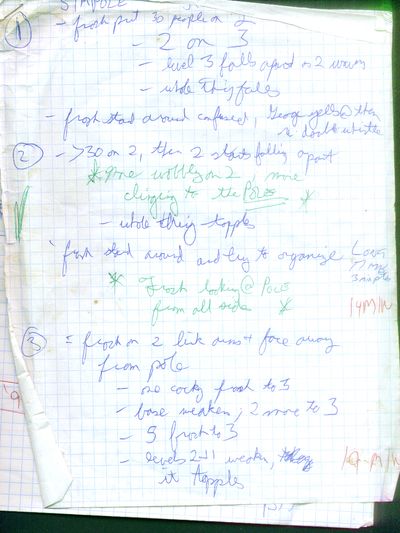 SIMPOLE
① - frosh put 30 people on 2
- 2 on 3
- level 3 falls apart as 2 wavers
- whole thing falls
- frosh stand around confused, George yells @ them
② - >30 on 2, then 2 starts falling apart
on 2, more
clinging to the POLE *
- whole thing topples
frosh stand around and try to organize
* Frosh looking @ POLE
from all sides *
14M/N
③ = frosh on 2 link arms + face away
from pole
- one cocky frosh to 3
- base weakens, 2 more to 3
- 5 frosh to 3
- levels 2+1 weaken,
it topples